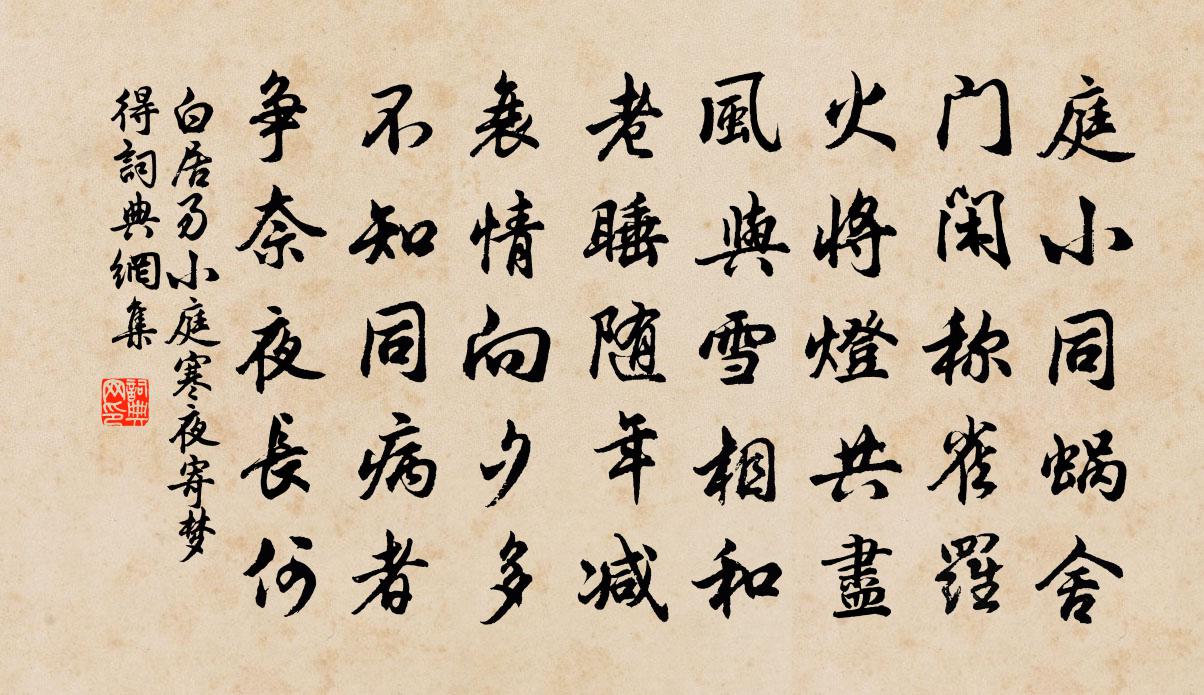 庭小同蜗舍
门闲称雀羅
火将燈共盡
風與雪相和
老睡随年减
衰情向夕多
不知同病者
争奈夜長何
白居易小庭寒夜寄梦
得詞典網集
詞典
网印